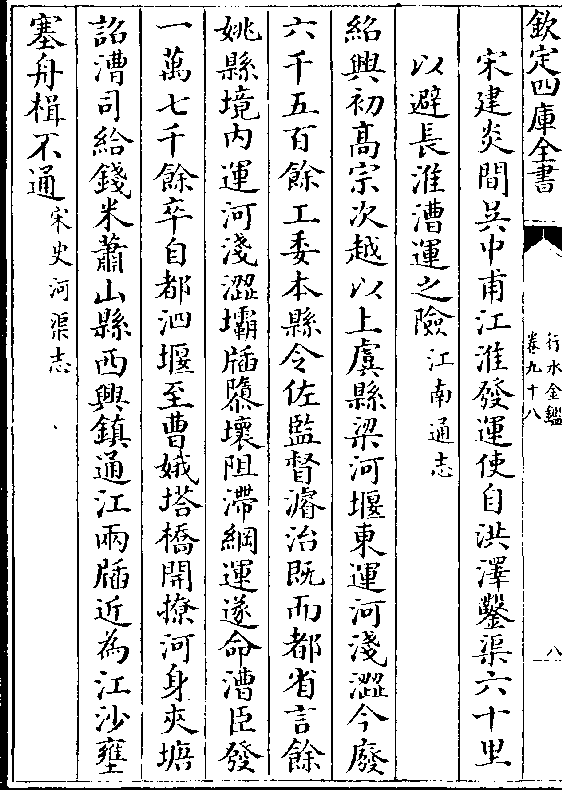 欽定四庫全書
行水金鑑
卷九十八
八
宋建炎間吳中甫江淮發運使自洪澤鑿渠六十里
以避長淮漕運之險江南通志
紹興初髙宗次越以上虞縣梁河堰東運河淺澀今廢
六千五百餘工委本縣令佐監督濬治既而都省言餘
姚縣境内運河淺澀壩牐隳壞阻滯綱運遂命漕臣發
一萬七千餘卒自都泗堰至曹娥塔橋開撩河身夾塘
詔漕司給錢米蕭山縣西興鎮通江兩牐近為江沙壅
塞舟楫不通宋史河渠志